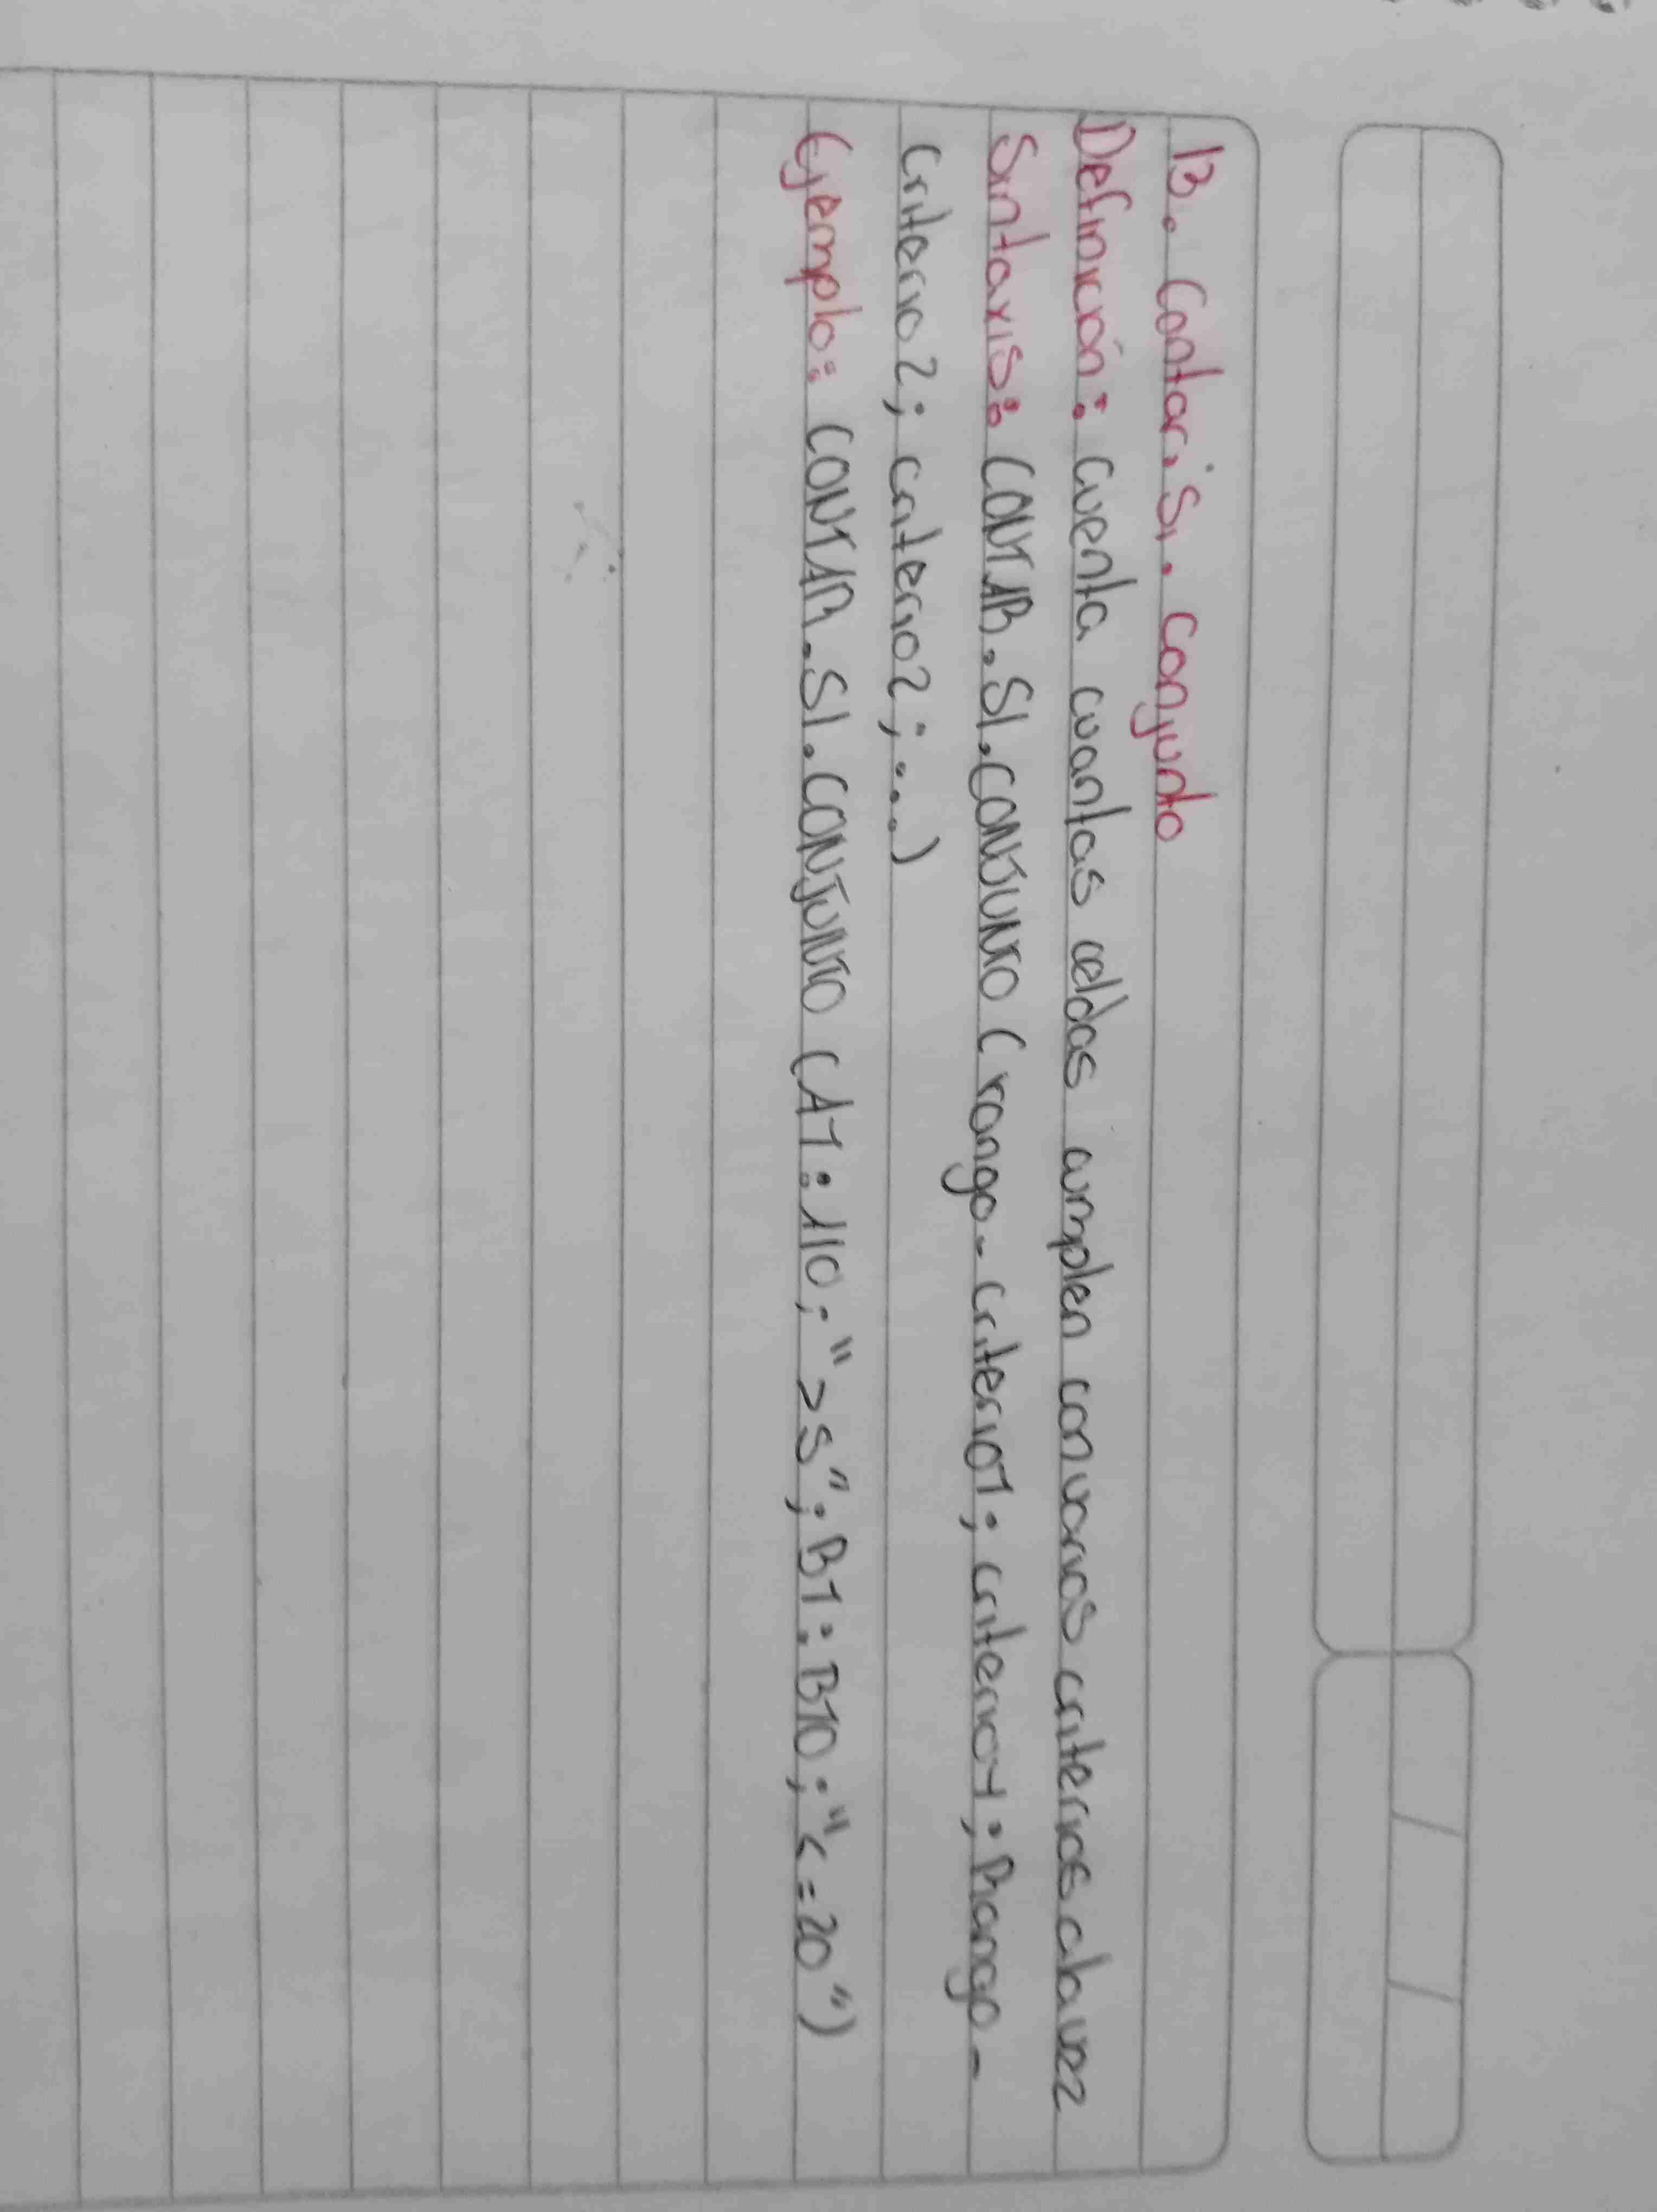 13. Contar. Si. conjunto
Definición: Cuenta cuantas celdas cumplen con varios criterios a la vez
Sintaxis: CONTAR.SI.CONJUNTO (rango-criterio1; criterio1; Rango-
criterio2; criterio2; ...)
Ejemplo: CONTAR.SI.CONJUNTO (A1:A10; ">5"; B1:B10; "<=20")